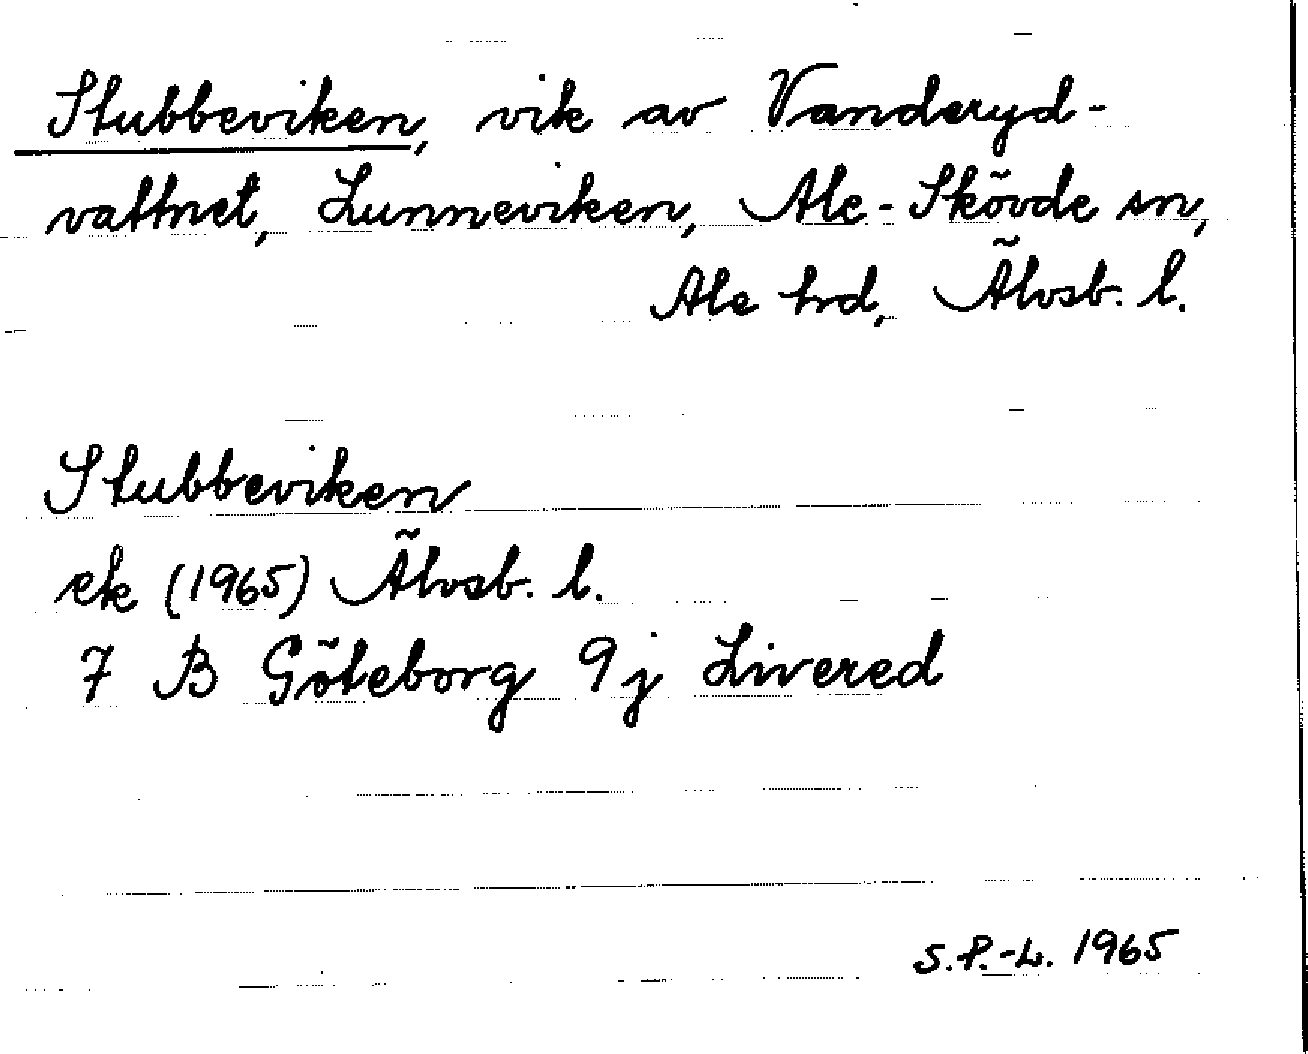 Stubbeviken, vik av Vanderyd-
vattnet, Lunneviken, Ale-Skövde sn,
Ale hrd, Älvsb. l.
Stubbeviken
ek (1965) Älvsb. l.
7 B Göteborg 9j Livered
S.P.-L. 1965